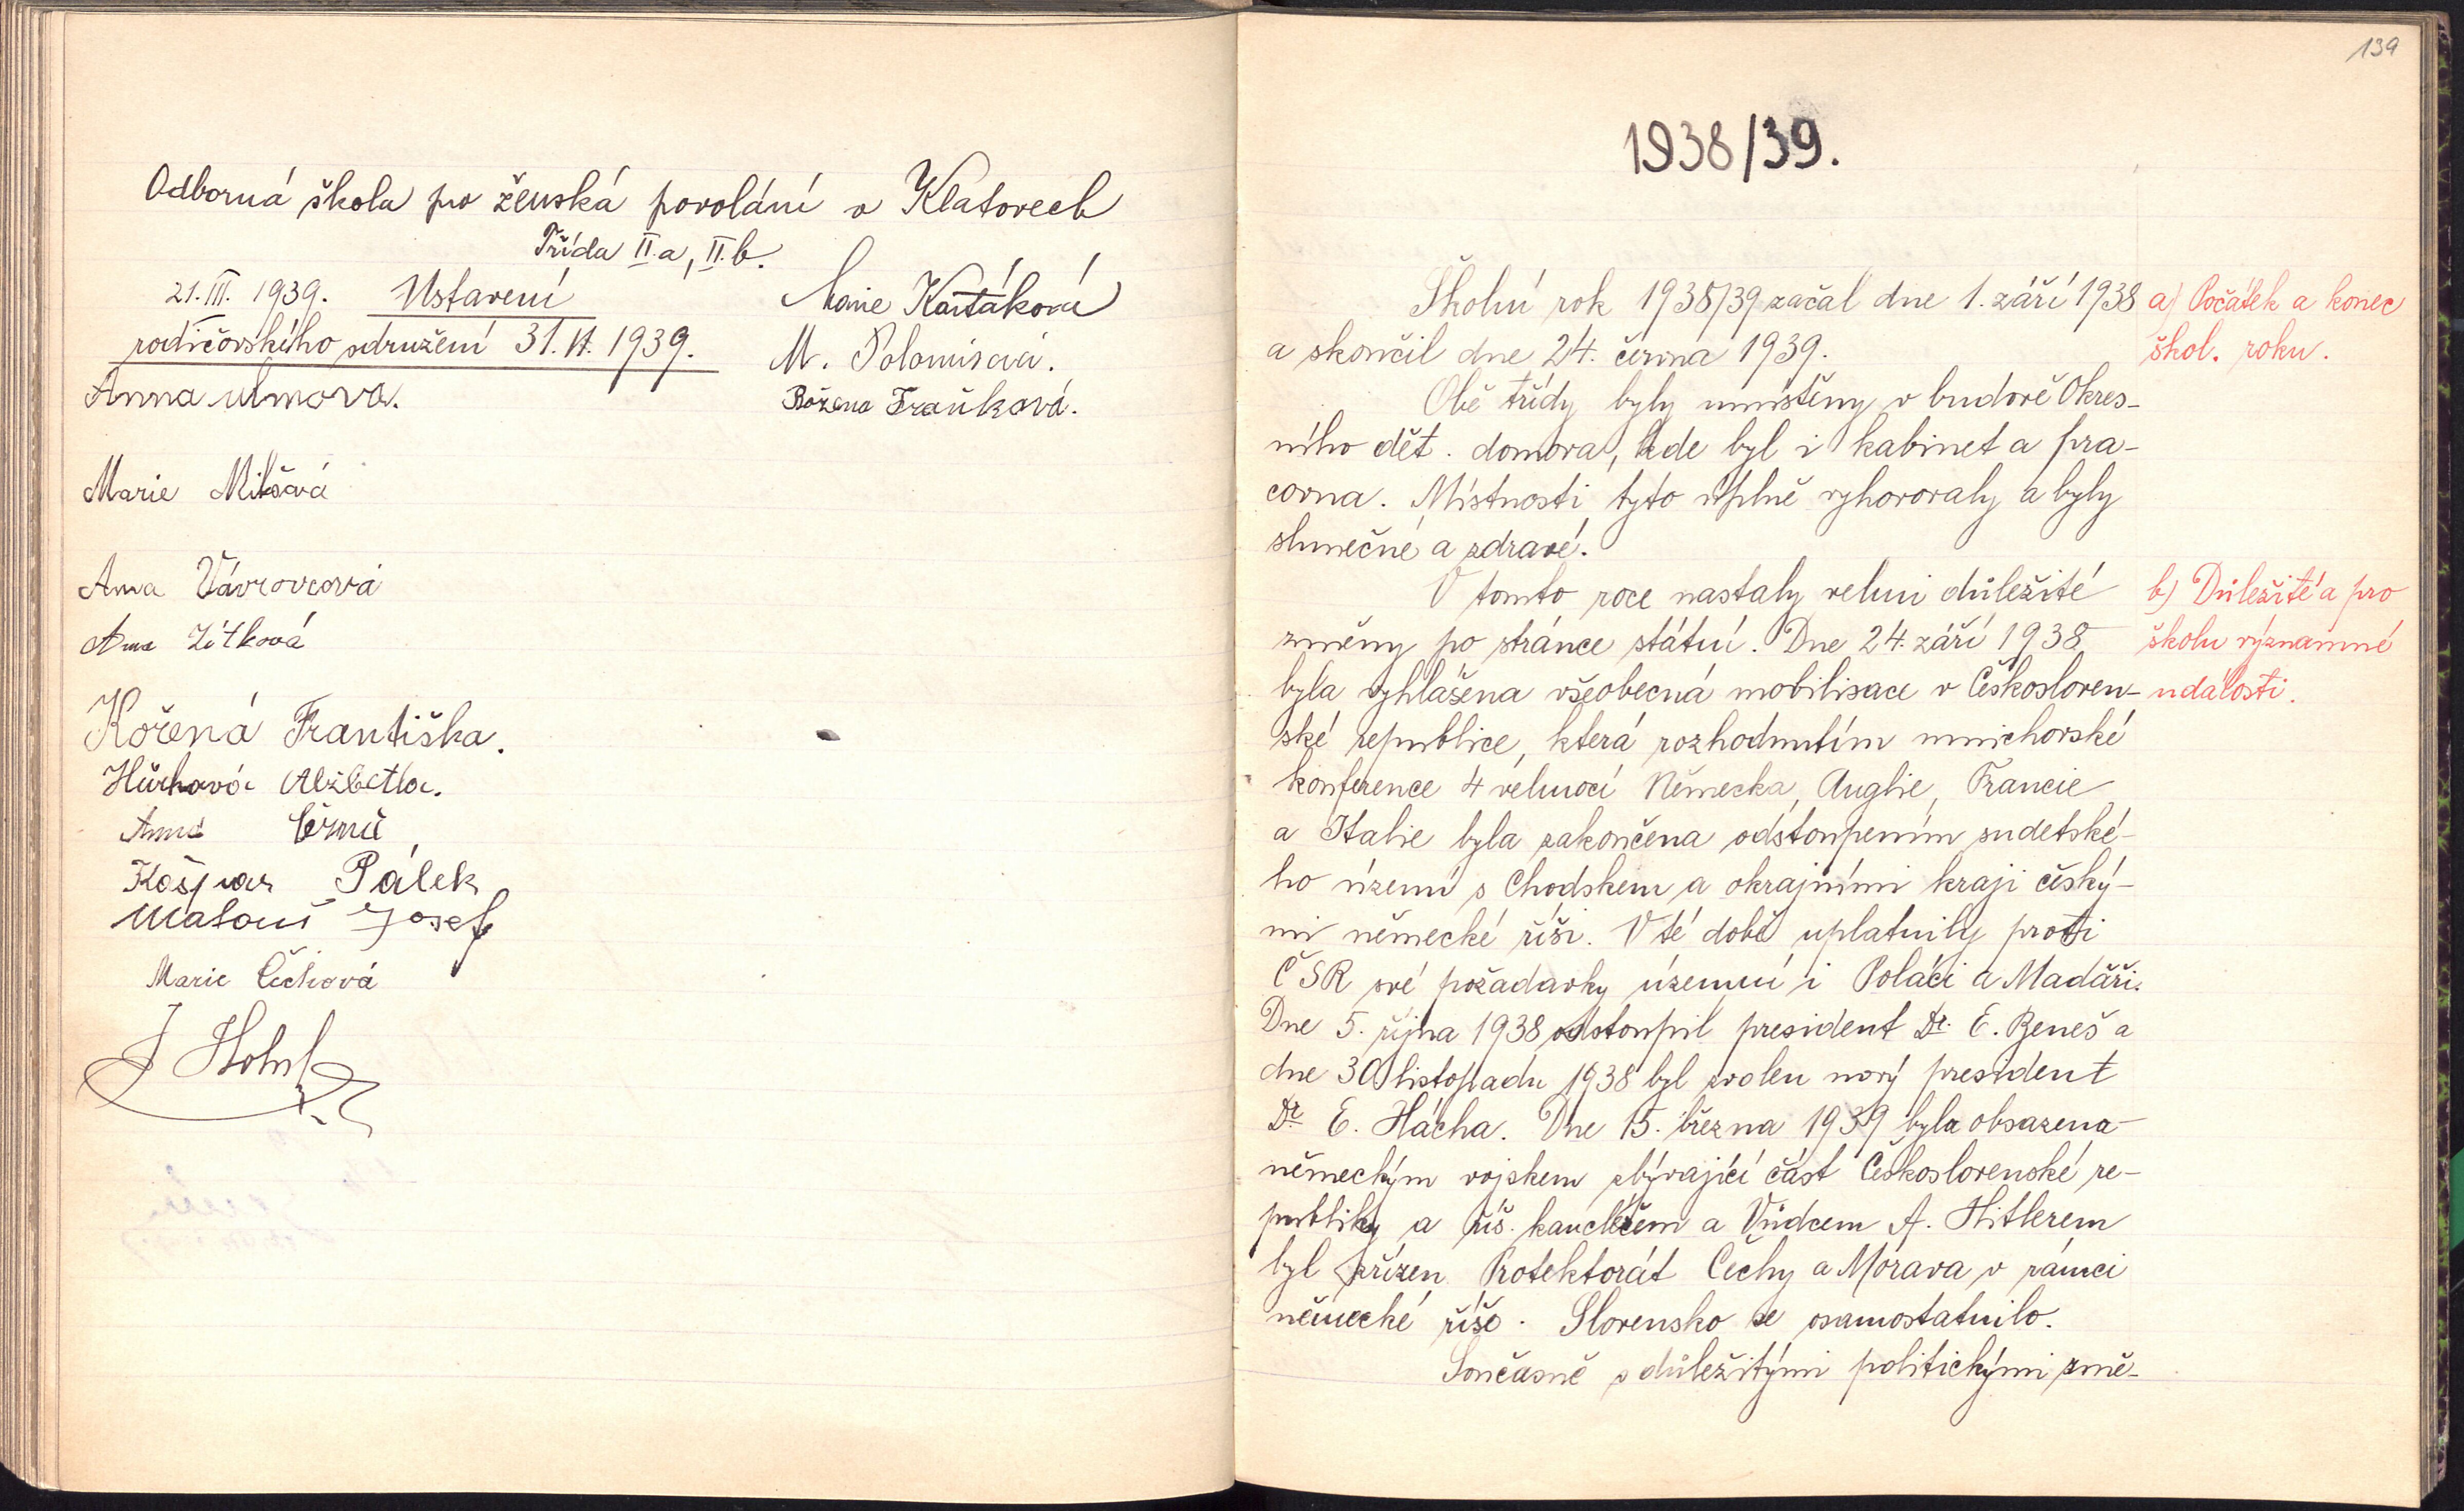 Odborná škola pro ženská povolání v Klatovech
Třída II.a, II.b.
21.III. 1939. Ustavení
rodičovského sdružení 31.VI. 1939.
Anna Ulmova.
Marie Mikšová
Anna Vávrovcová
Anna Zítková
Kořená Františka.
Hůrková Alžbetha.
Anna Černá
Kašpar Pálek
Matouš Josef
Marie Čechová
Marie Kartáková
M. Polomisová.
Božena Fraňková.
139
1938/39.
Školní rok 1938/39 začal dne 1. září 1938
a skončil dne 24. června 1939.
a) Počátek a konec
škol. roku.
Obě třídy byly umístěny v budově Okres-
ního dět. domova, kde byl i kabinet a pra-
covna. Místnosti tyto úplně vyhovovaly a byly
slunečné a zdravé.
V tomto roce nastaly velmi důležité
změny po stránce státní. Dne 24. září 1938
byla vyhlášena všeobecná mobilisace v Českosloven-
b) Důležité a pro
školu významné
události.
ské republice, která rozhodnutím mnichovské
konference 4 velmocí Německa, Anglie, Francie
a Italie byla zakončena odstoupením sudetské-
ho území s Chodskem a okrajními kraji český-
mi německé říši. V té době uplatnily proti
ČSR své požadavky územní i Poláci a Madaři.
Dne 5. října 1938 odstoupil president Dr. E. Beneš a
dne 30 listopadu 1938 byl zvolen nový president
Dr. E. Hácha. Dne 15. března 1939 byla obsazena
německým vojskem zbývající část Československé re-
publiky a říš. kancléřem a Vůdcem A. Hitlerem
byl zřízen Protektorát Čechy a Morava v rámci
německé říše. Slovensko se osamostatnilo.
Současně s důležitými politickými změ-